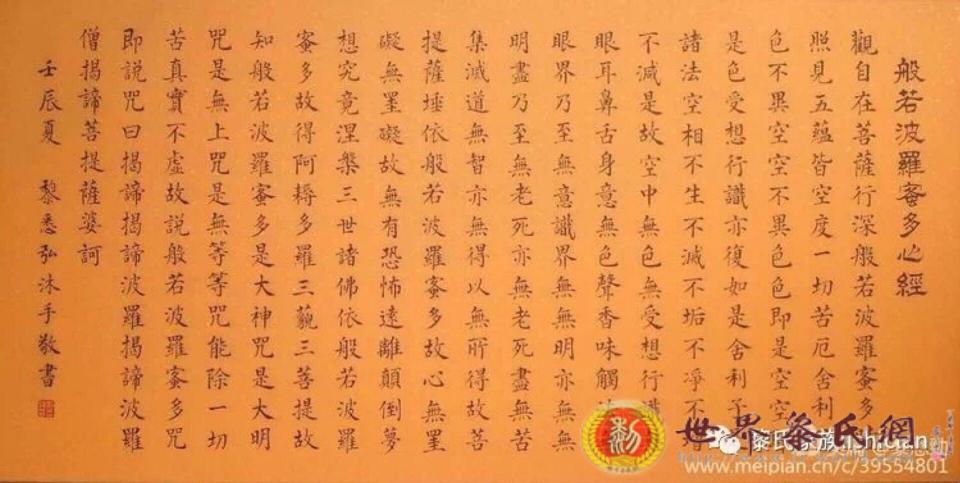 般若波羅蜜多心經
觀自在菩薩行深般若波羅蜜多
照見五蘊皆空度一切苦厄舍利
色不異空空不異色色即是空空
是色受想行識亦復如是舍利子
諸法空相不生不滅不垢不淨不
不減是故空中無色無受想行識
眼耳鼻舌身意無色聲香味觸
眼界乃至無意識界無無明亦無無
明盡乃至無老死亦無老死盡無苦
集滅道無智亦無得以無所得故菩
提薩埵依般若波羅蜜多故心無罣
礙無罣礙故無有恐怖遠離顛倒夢
想究竟涅槃三世諸佛依般若波羅
蜜多故得阿耨多羅三藐三菩提故
知般若波羅蜜多是大神咒是大明
咒是無上咒是無等等咒能除一切
苦真實不虛故說般若波羅蜜多咒
即說咒曰揭諦揭諦波羅揭諦波羅
僧揭諦菩提薩婆訶
壬辰夏 黎悉弘沐手敬書
世界黎氏網
黎氏家族
www.meipian.cn/c/39554801